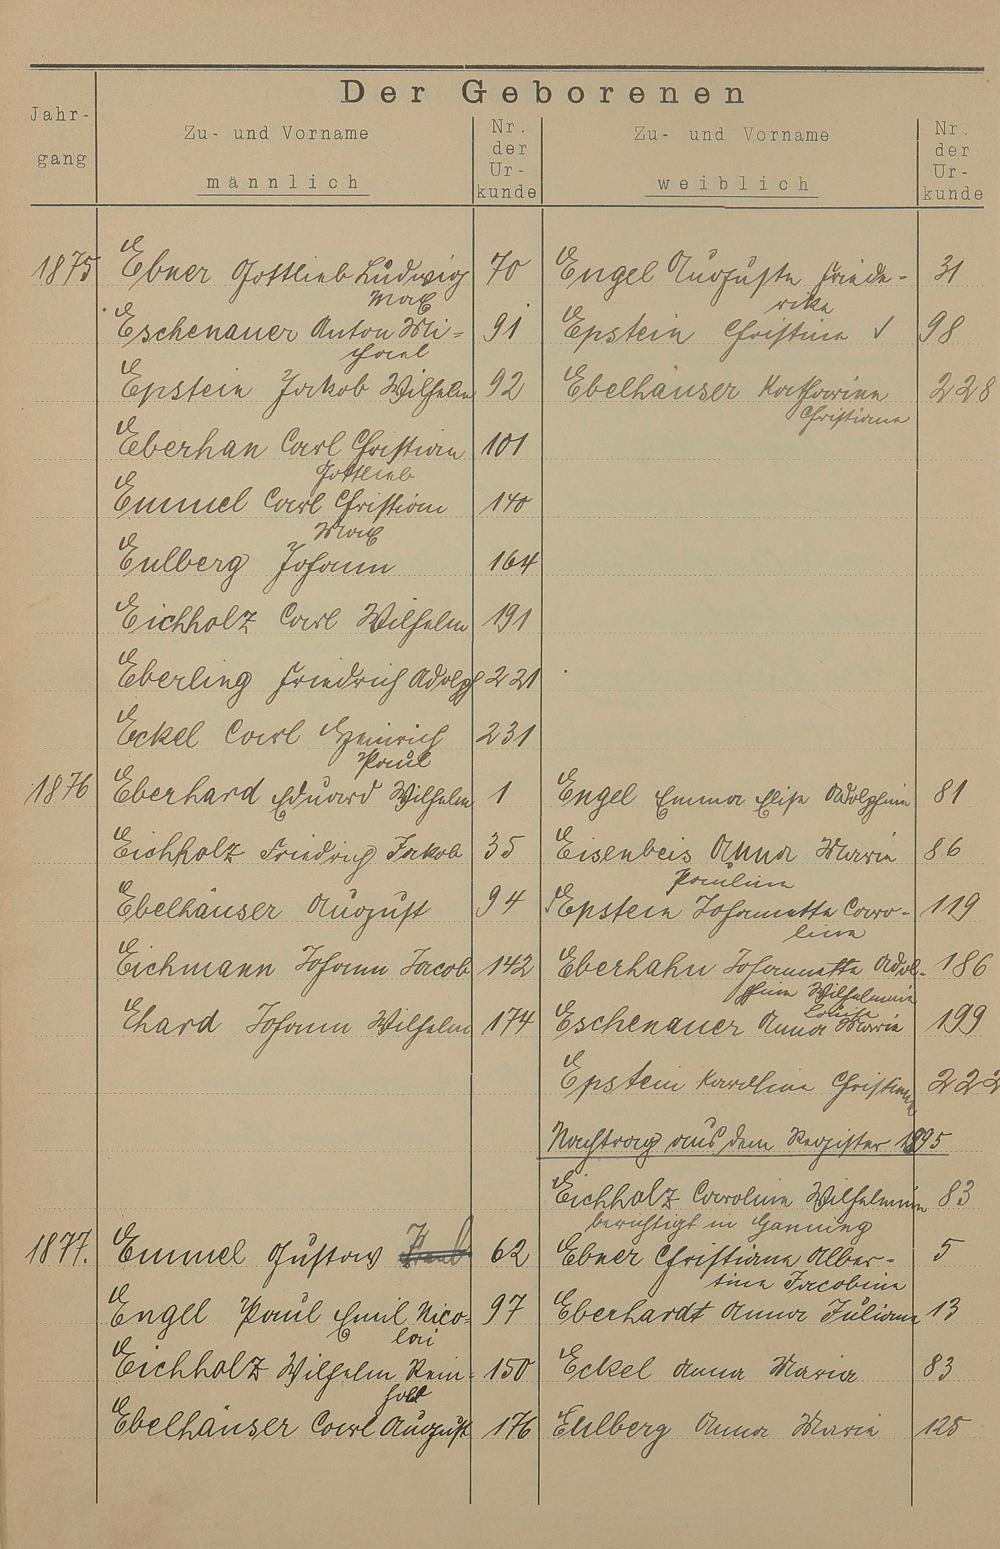 Der Geborenen
Jahr-
gang
Zu- und Vorname
männlich
Nr.
der
Ur-
kunde
Zu- und Vorname
weiblich
Nr.
der
Ur-
kunde
1875 Ebner Gottlieb Ludwig 70 Engel Auguste Friede- 31
Max rike
Eschenauer Anton Mi= 91 Epstein Christine √ 98
chael
Epstein Jakob Wilhelm 92 Ebelhäuser Katharine 228
Christiane
Eberhan Carl Christian 101
Gottlieb
Emmel Carl Christian 140
Max
Eulberg Johann 164
Eichholz Carl Wilhelm 191
Eberling Friedrich Adolph 221
Eckel Carl Heinrich 231
Paul
1876 Eberhard Eduard Wilhelm 1 Engel Emma Elise Adolphine 81
Eichholz Friedrich Jakob 35 Eisenbeis Anna Marie 86
Pauline
Ebelhäuser August 94 √Epstein Johannette Caro- 119
line
Eichmann Johann Jacob 142 Eberhahn Johannette Adol- 186
phine Wilhelmine
Louise
Ehard Johann Wilhelm 174 Eschenauer Anna Marie 199
Epstein Karoline Christiane 222
Nachtrag aus dem Register 1895
Eichholz Caroline Wilhelmine 83
berichtigt in
1877. Emmel Gustav 62 Ebner Christiane Alber- 5
tine Jacobine
Engel Paul Emil Nico- 97 Eberhardt Anna Juliane 13
lai
Eichholz Wilhelm Rein- 150 Eckel Anna Maria 83
hold
Ebelhäuser Carl August 176 Eulberg Anna Marie 125